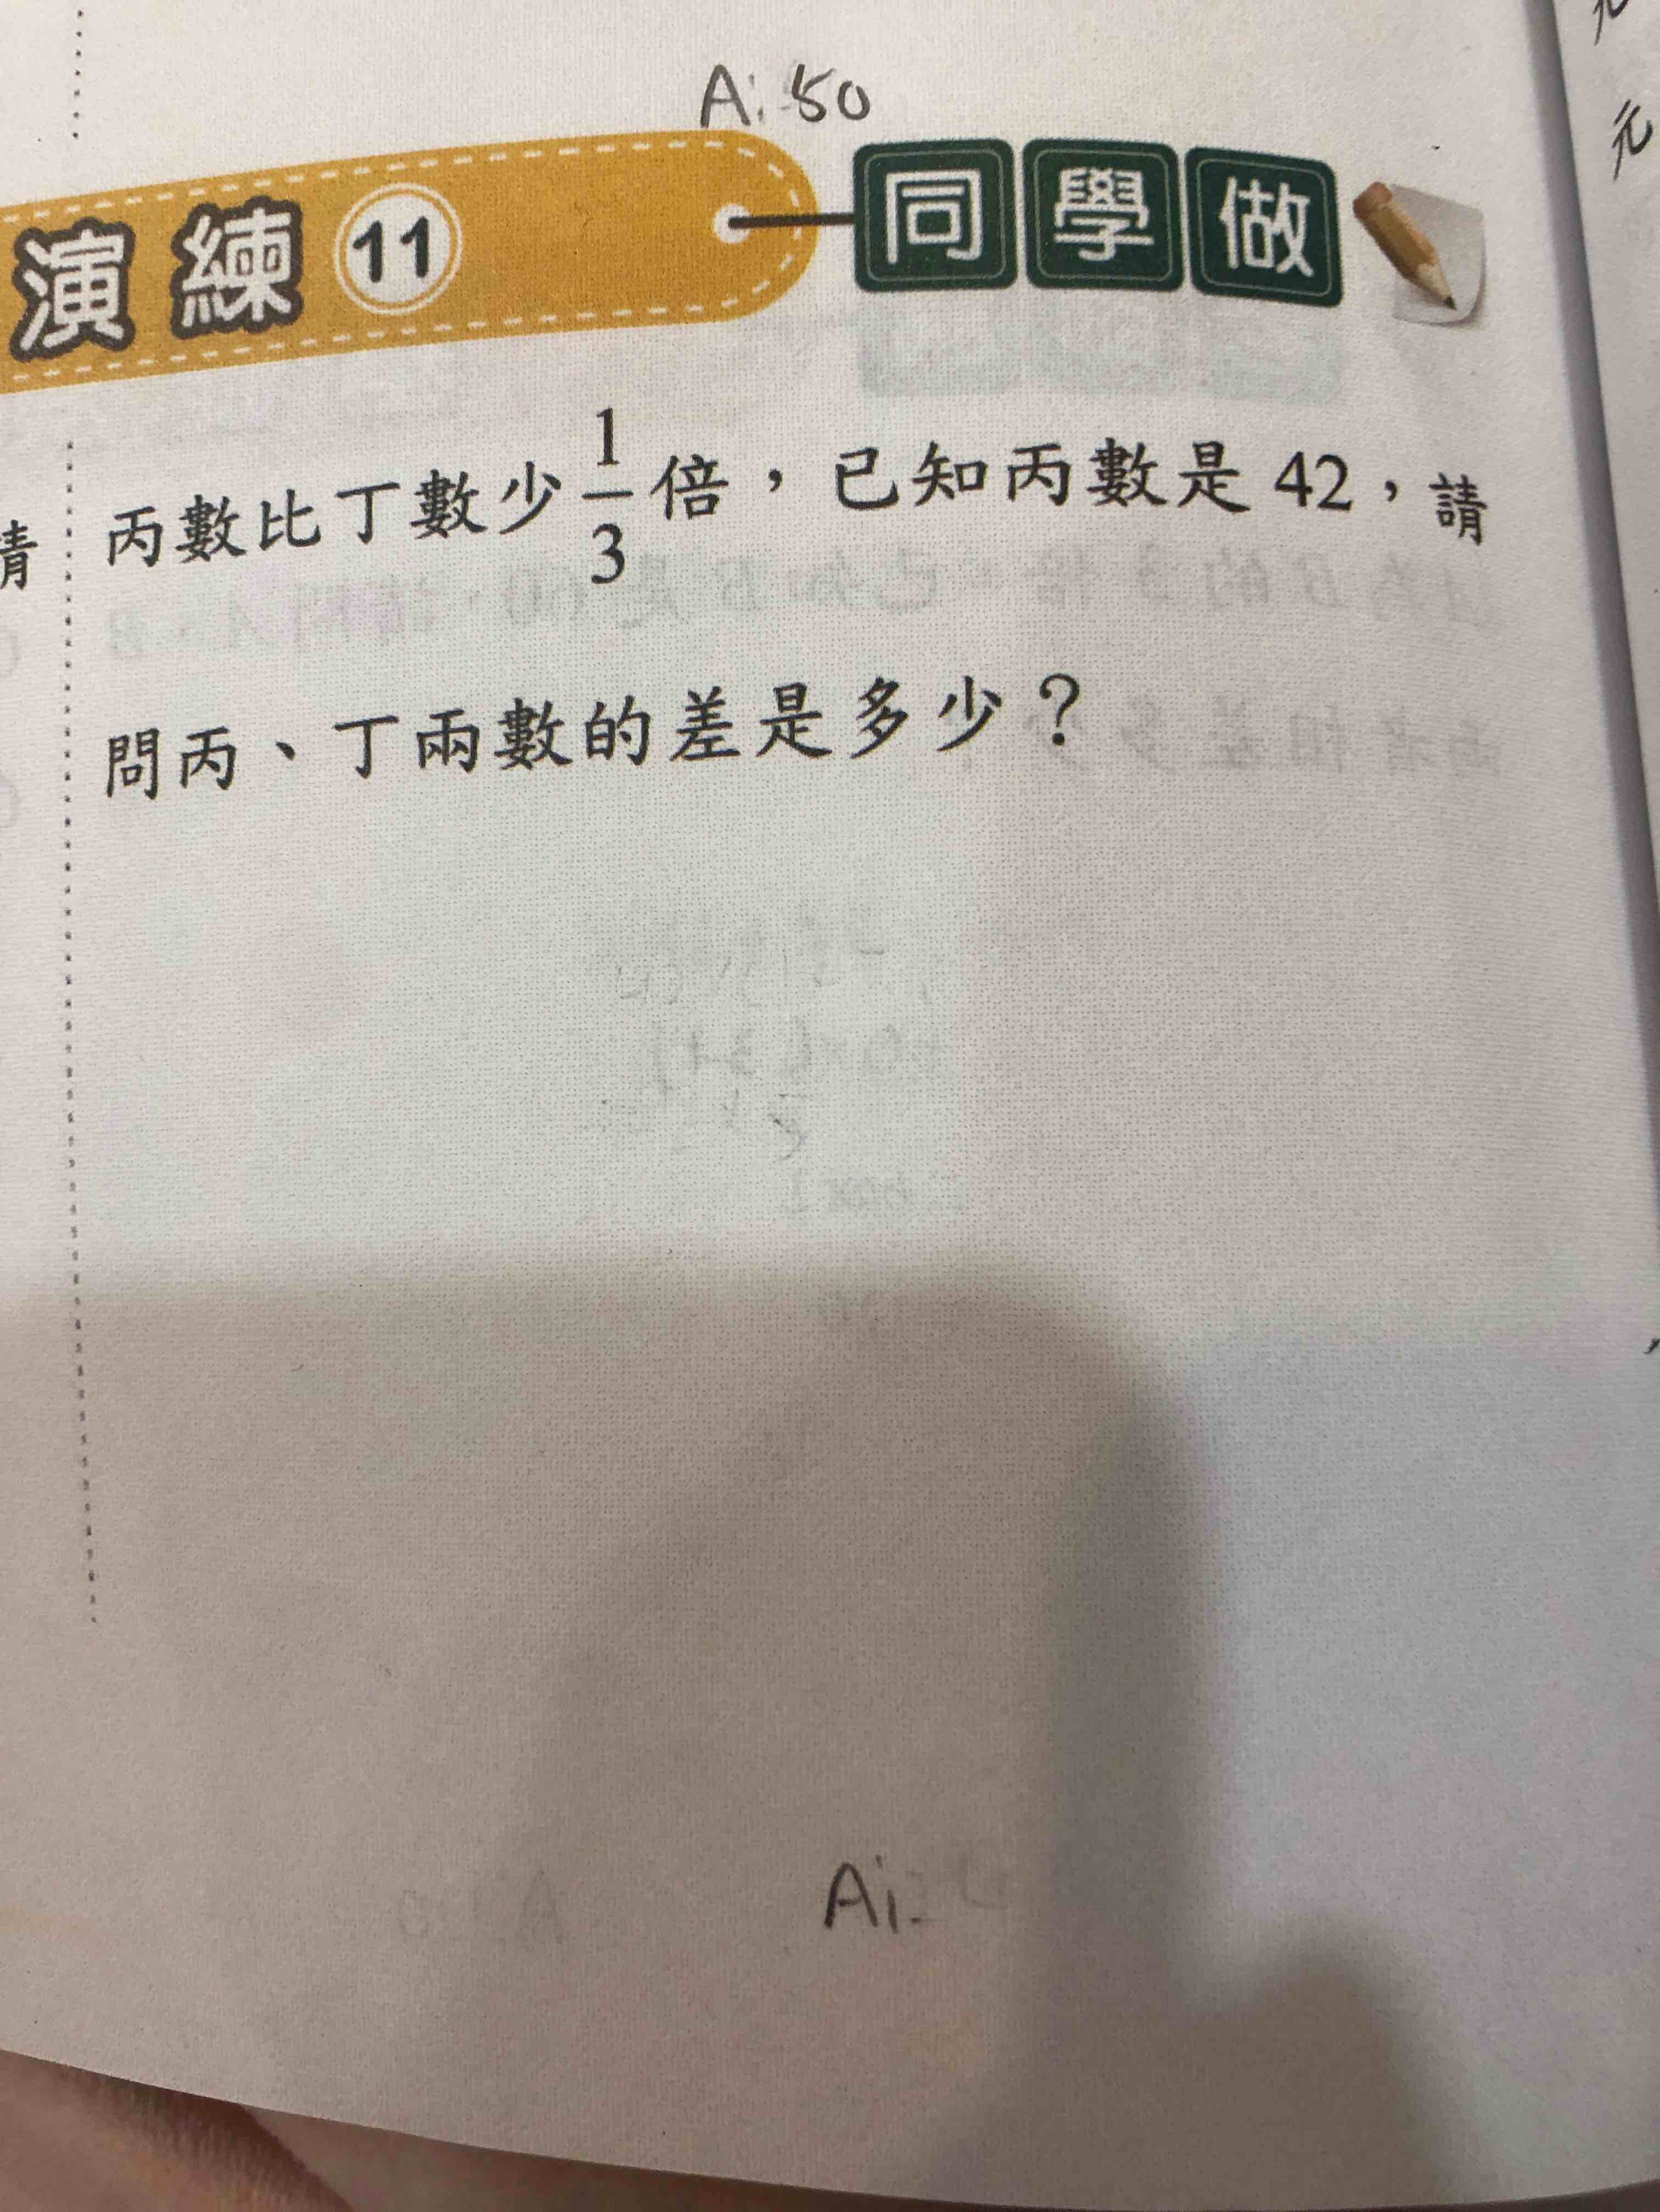 元
元
A: 50
演練 11 同學做
丙數比丁數少 1/3 倍，已知丙數是 42，請
請
問丙、丁兩數的差是多少？
A: